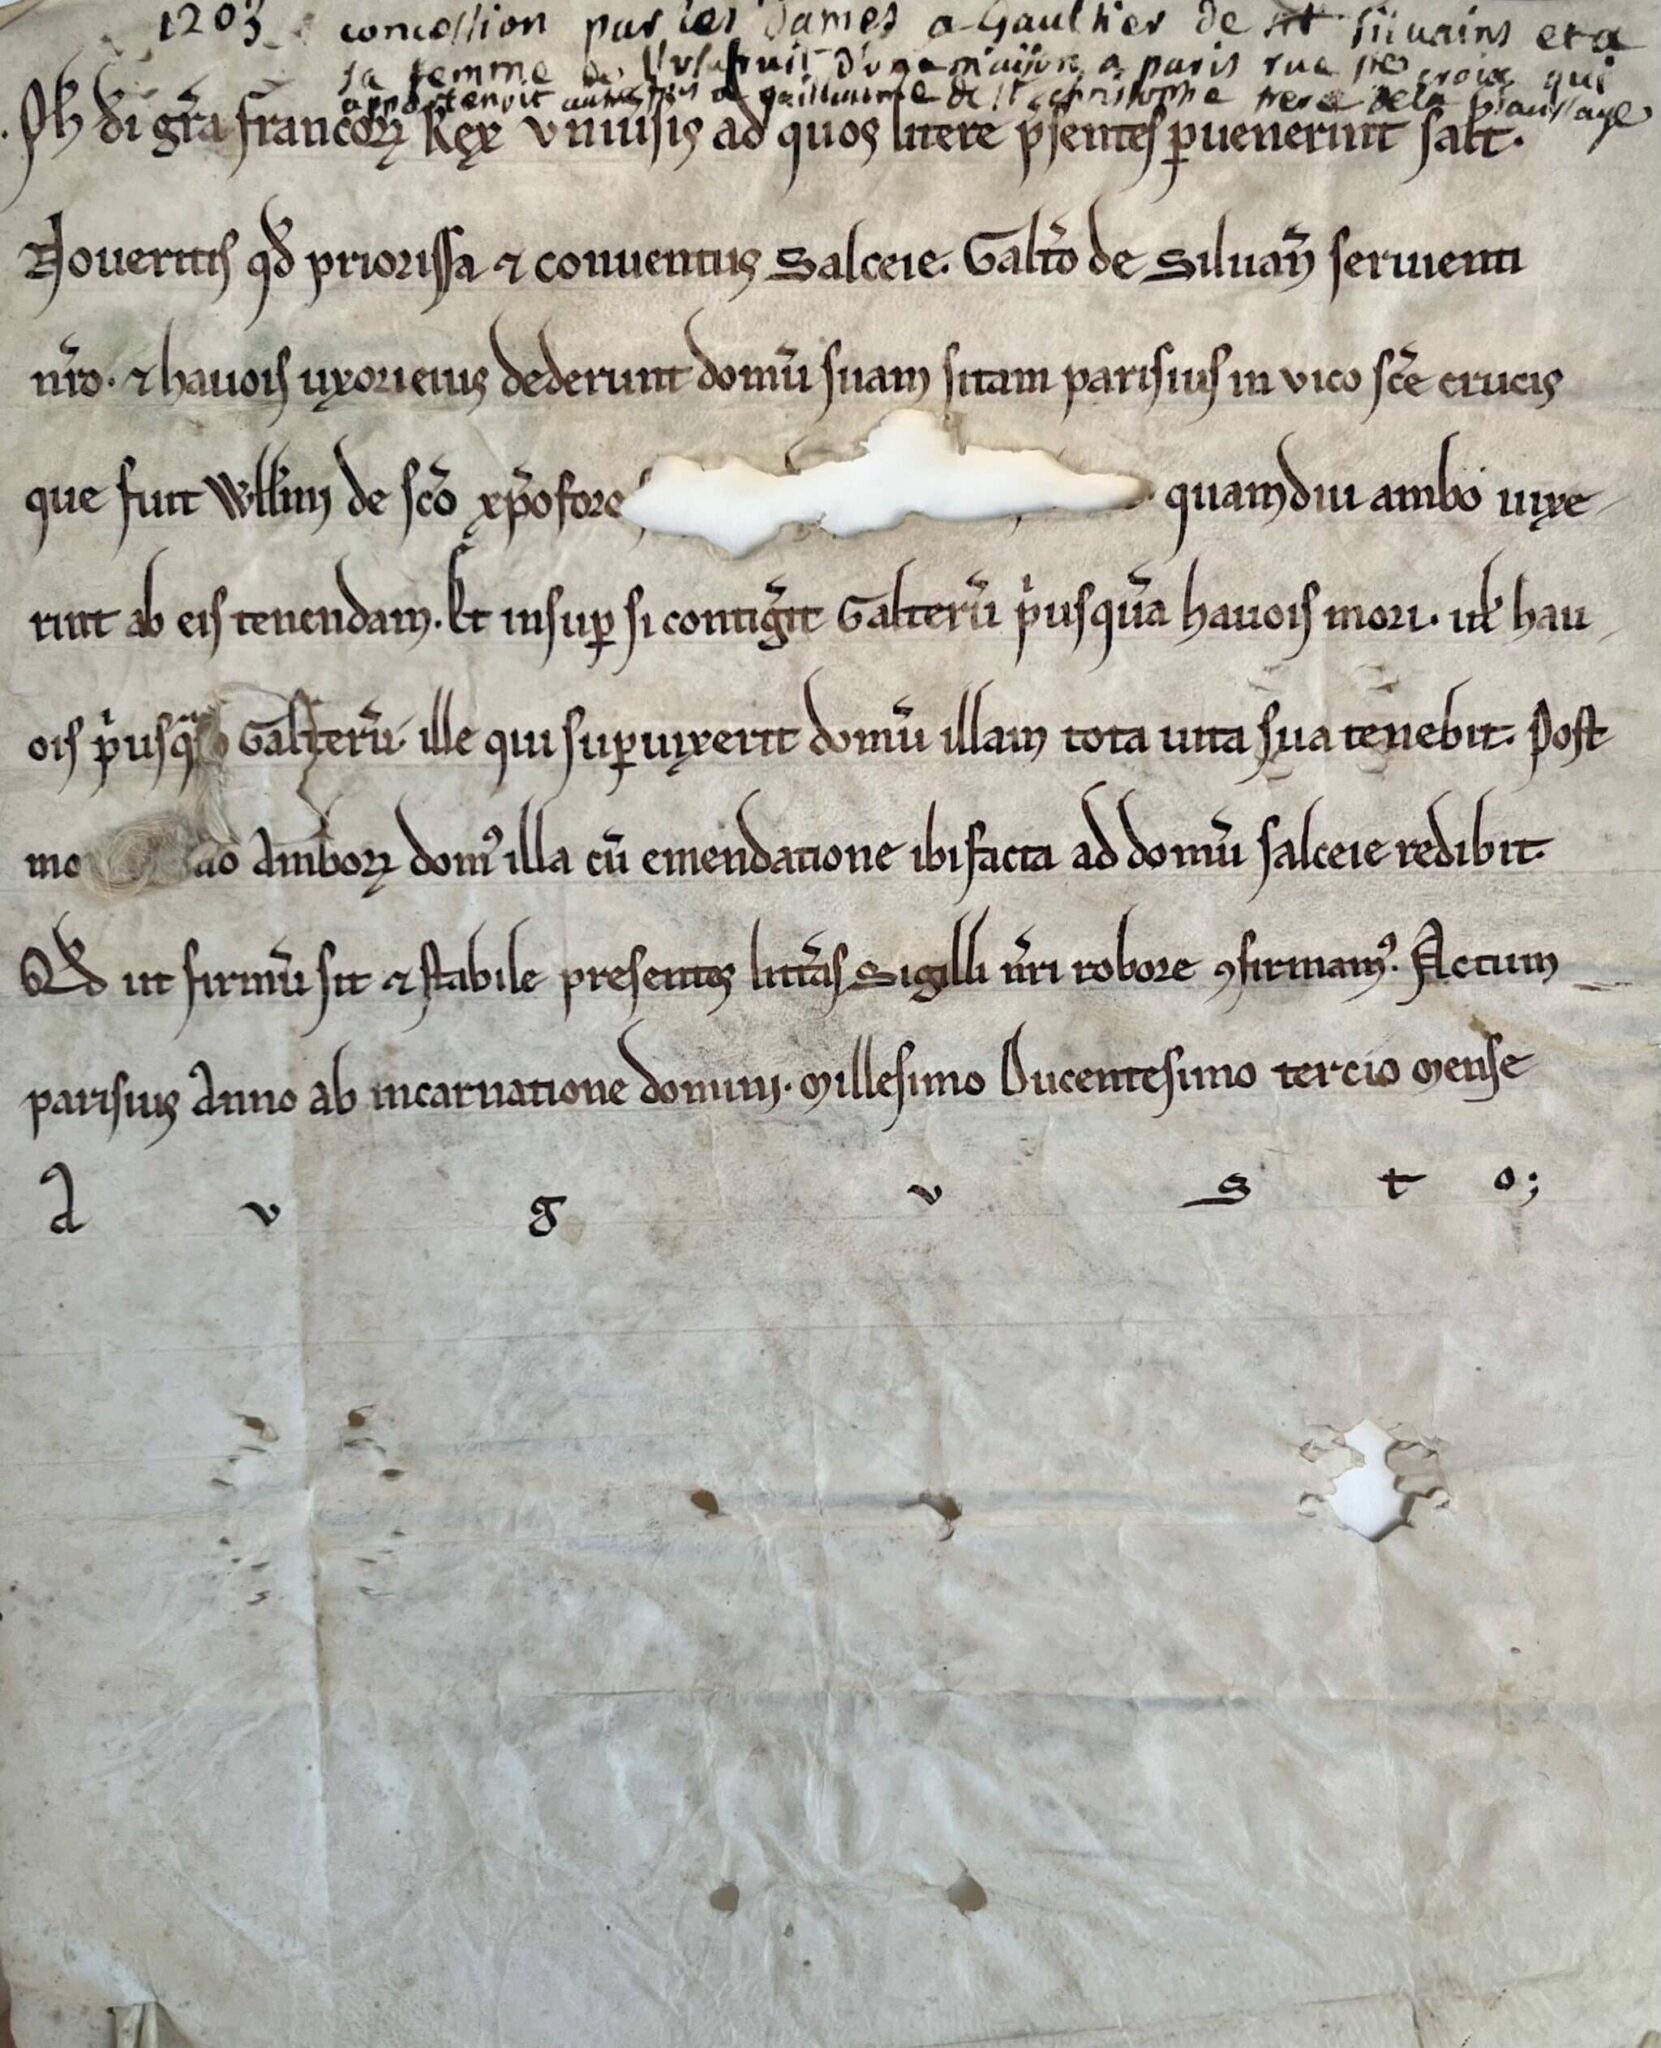 1203 concession par les dames a Gaulthier de st siluains et a
sa femme de l'usufruit d'une maison a paris rue ste croix qui
appartenoit autrefois a guillaume de st christophe frere de la
Ph di gr̃a francoꝝ Rex vniu͛sis ad quos litere p͛sentes ꝑuenerint salt̃.
Noueritis qd̃ priorissa ⁊ conuentus Salceie. Galt̃o de Siluan̄ seruienti
nr̃o. ⁊ havois uxori eius dederunt domũ suam sitam parisius in vico sc̃e crucis
que fuit Wllĩm de sc̃o xp̃ofore quamdiu ambo uixe
rint ab eis tenendam. Et insuꝑ si contig̃it Galterũ p͛us qũa havois mori. ul̃ hau
ois p͛us Galterũ. ille qui suꝑuixerit domũ illam tota uita sua tenebit. Post
amboꝝ domꝰ illa cũ emendatione ibi facta ad domũ salceie redibit.
Qd̃ ut firmũ sit ⁊ stabile presentes litt̃as Sigilli nr̃i robore ꝯfirmamꝰ. Actum
parisius Anno ab incarnatione domini. Millesimo Ducentesimo tercio mense
A v g v s t o;